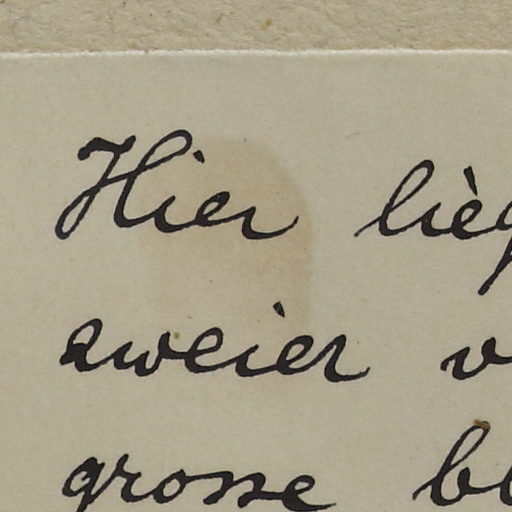 Hier lieg
zweier v
grosse bl